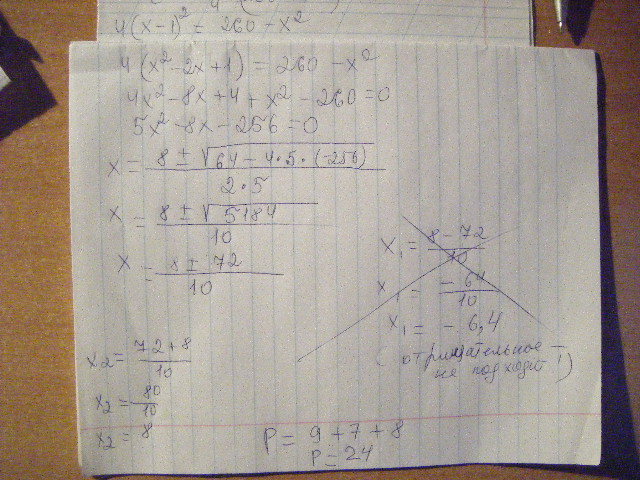 4(x-1)² = 260 - x²
4(x²-2x+1) = 260 - x²
4x²-8x+4+x²-260=0
5x²-8x-256=0
x = 8 ± √64-4·5·(-256)
2·5
x = 8 ± √5184
10
x = 8 ± 72
10
x₁ = 8-72
10
x₁ = -64
10
x₁ = -6,4
(отрицательное –
не подходит!)
x₂ = 72+8
10
x₂ = 80
10
x₂ = 8
P = 9+7+8
P = 24